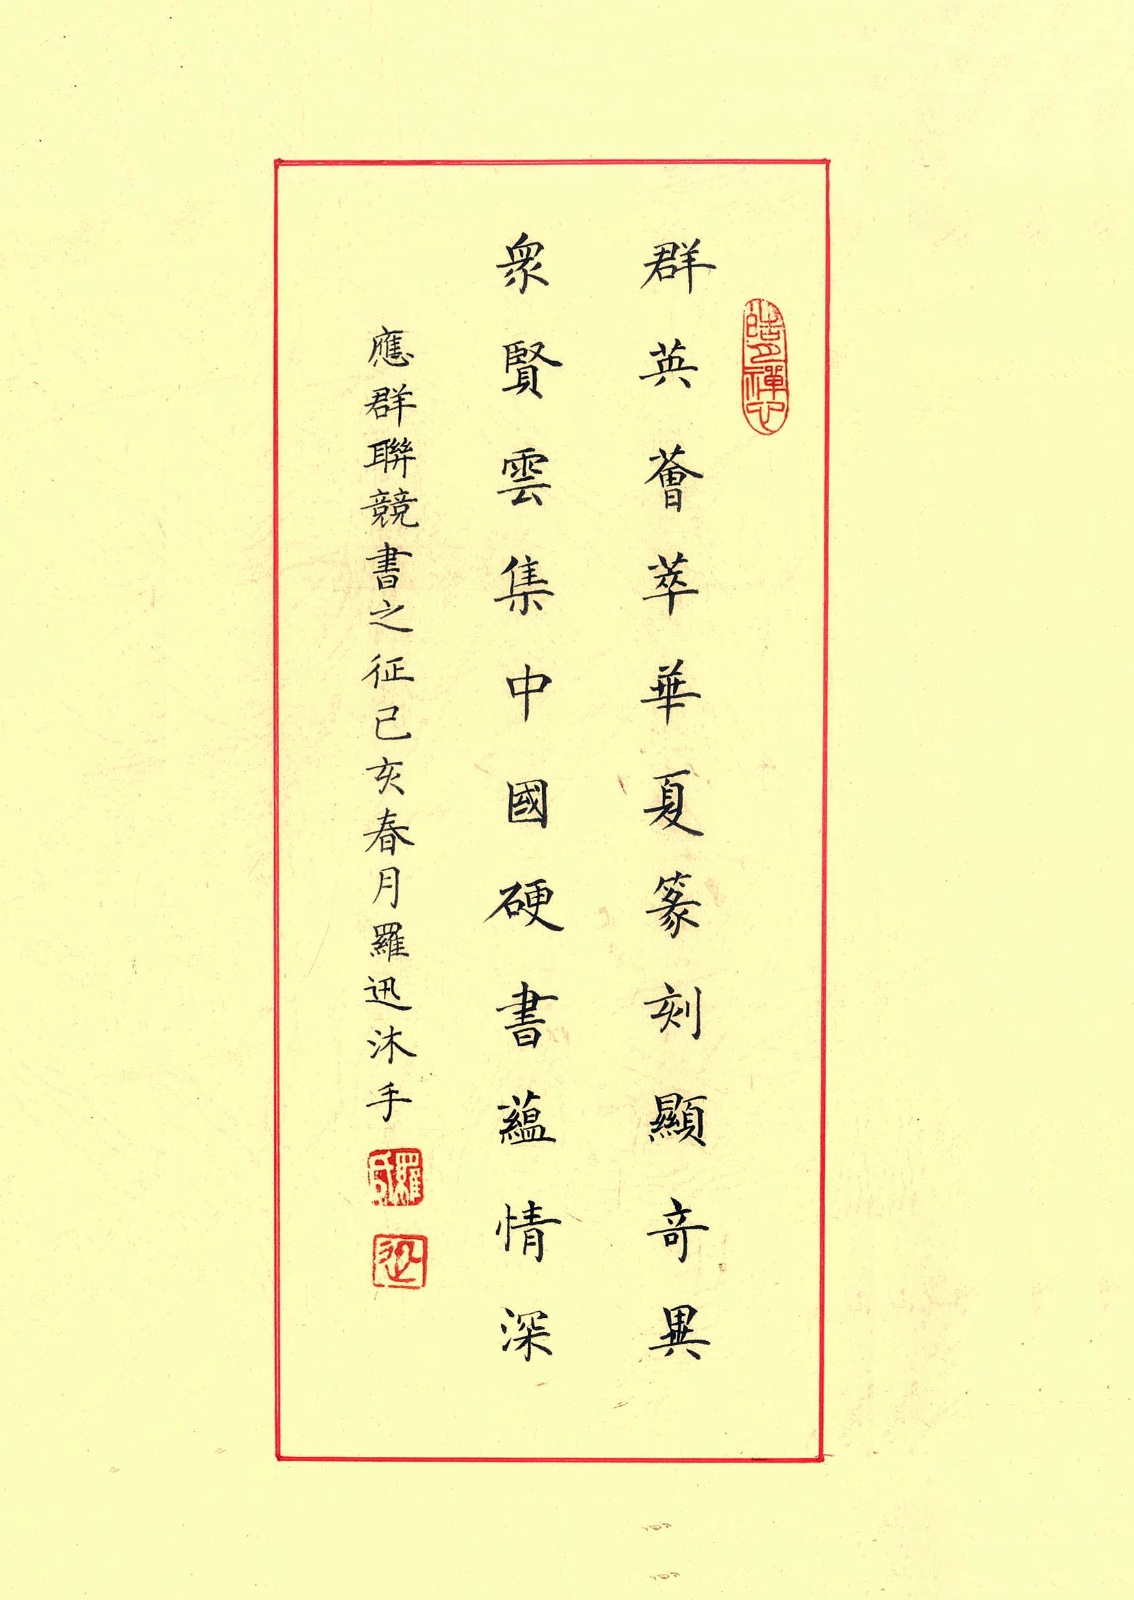 群英薈萃華夏篆刻顯奇異
衆賢雲集中國硬書蘊情深
應群聯競書之征己亥春月羅迅沐手
皓月禪心
羅氏
迅